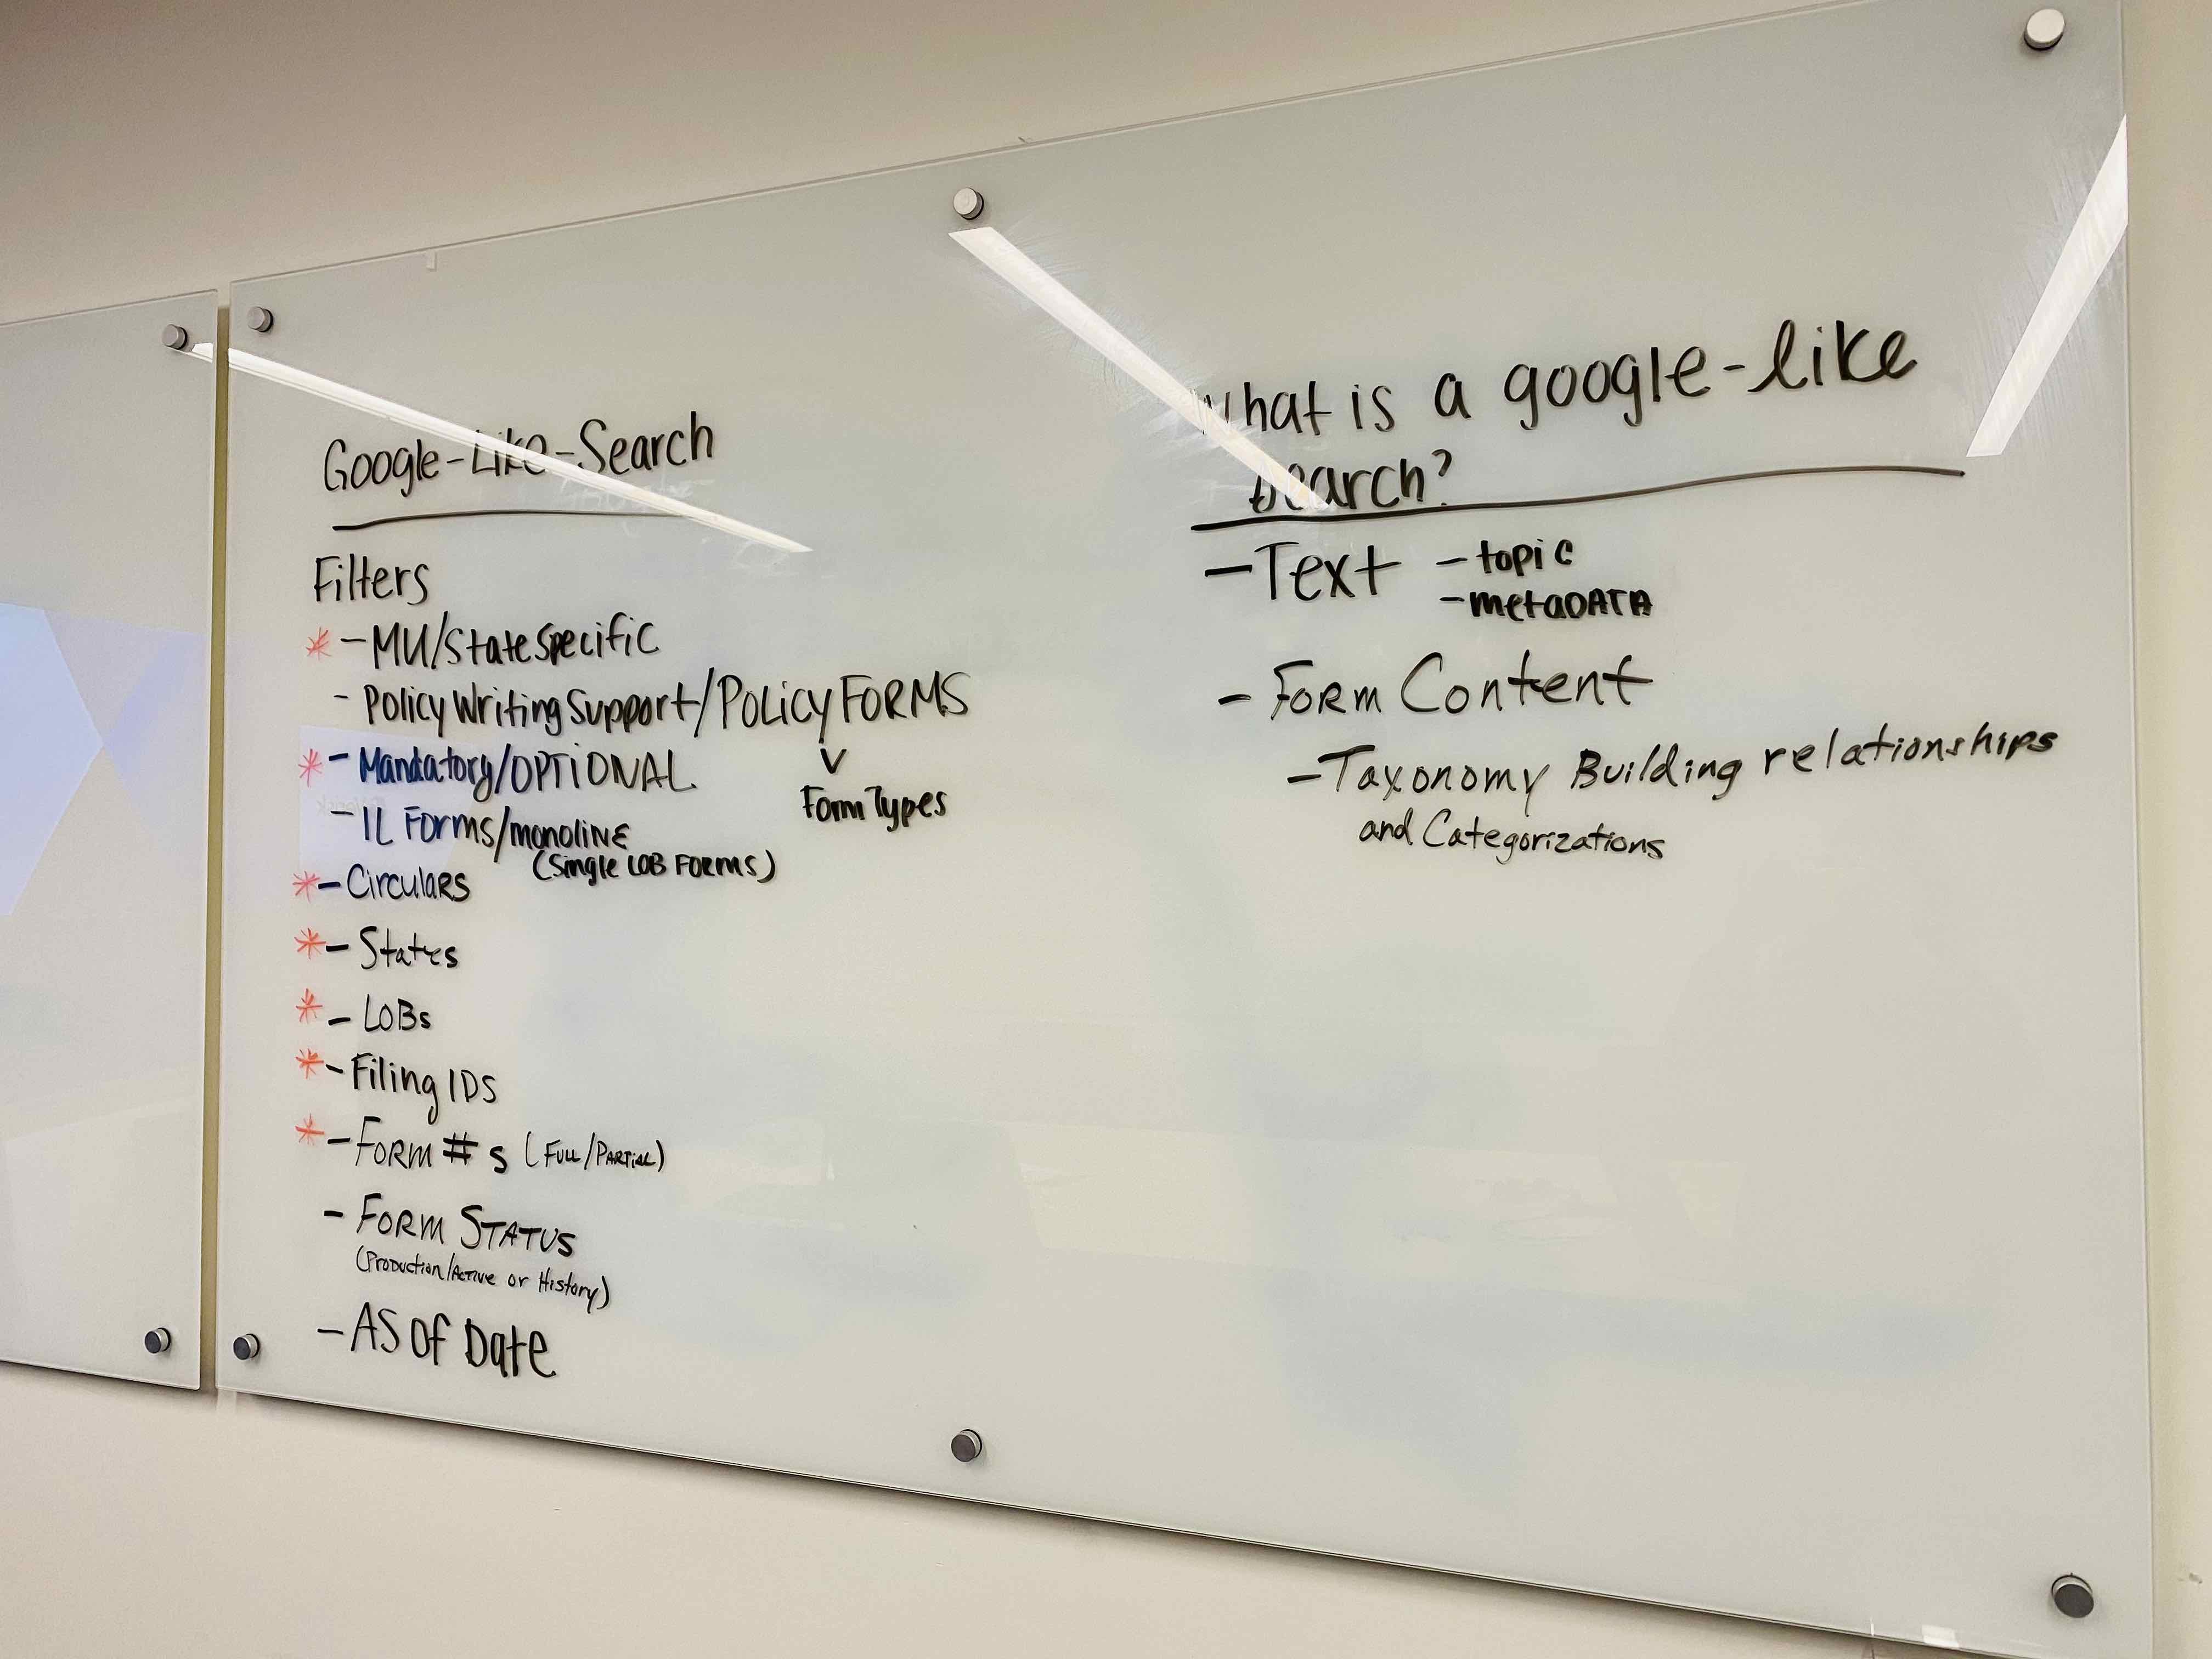 Google-Like-Search
Filters
* - MU/State Specific
- Policy Writing Support/POLICY FORMS
Form Types
* - Mandatory/OPTIONAL
- IL Forms/monoline
(Single LOB FORMS)
* - Circulars
* - States
* - LOBs
* - Filing IDs
* - FORM #s (FULL/PARTIAL)
- FORM STATUS
(Production/Active or History)
- AS OF Date
What is a google-like
search?
- Text - topic
- metaDATA
- FORM Content
- Taxonomy Building relationships
and Categorizations